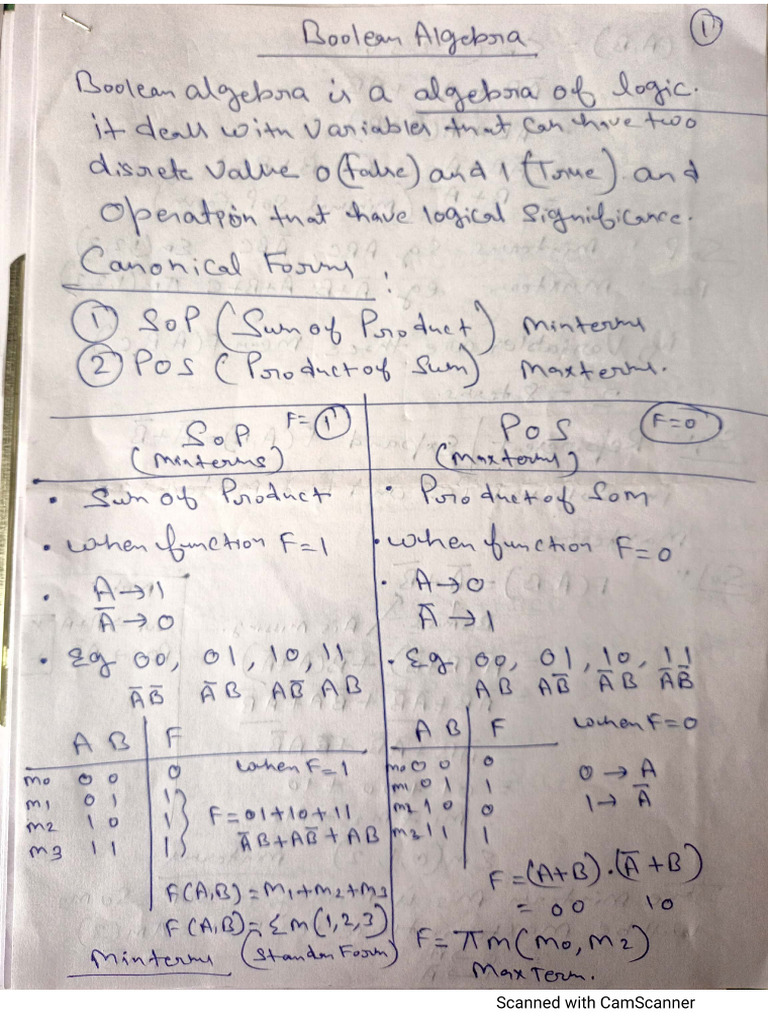 Boolean Algebra
1
Boolean algebra is a algebra of logic.
it deals with variables that can have two
discrete value 0 (false) and 1 (True) and
operation that have logical significance.
Canonical Forms :
① SOP (Sum of Product) minterms
② POS (Product of Sum) Maxterms.
SOP F=1
(minterms)
• Sum of Product
• when function F=1
• A→1
A̅→0
• Eg 00, 01, 10, 11
A̅B̅ A̅B AB̅ AB
A B F
m0 0 0 0 when F=1
m1 0 1 1
m2 1 0 1 F=01+10+11
m3 1 1 1 A̅B+AB̅+AB
F(A,B)=m1+m2+m3
F(A,B)=Σm(1,2,3)
Minterms (Standm Form)
POS F=0
(Maxterms)
• Product of Som
• when function F=0
• A→0
A̅→1
• Eg 00, 01, 10, 11
AB AB̅ A̅B A̅B̅
A B F when F=0
m0 0 0 0
m1 0 1 1 0→A
m2 1 0 0 1→A̅
m3 1 1 1
F=(A+B).(A̅+B)
= 00 10
F=πm(m0,m2)
MaxTerm.
Scanned with CamScanner